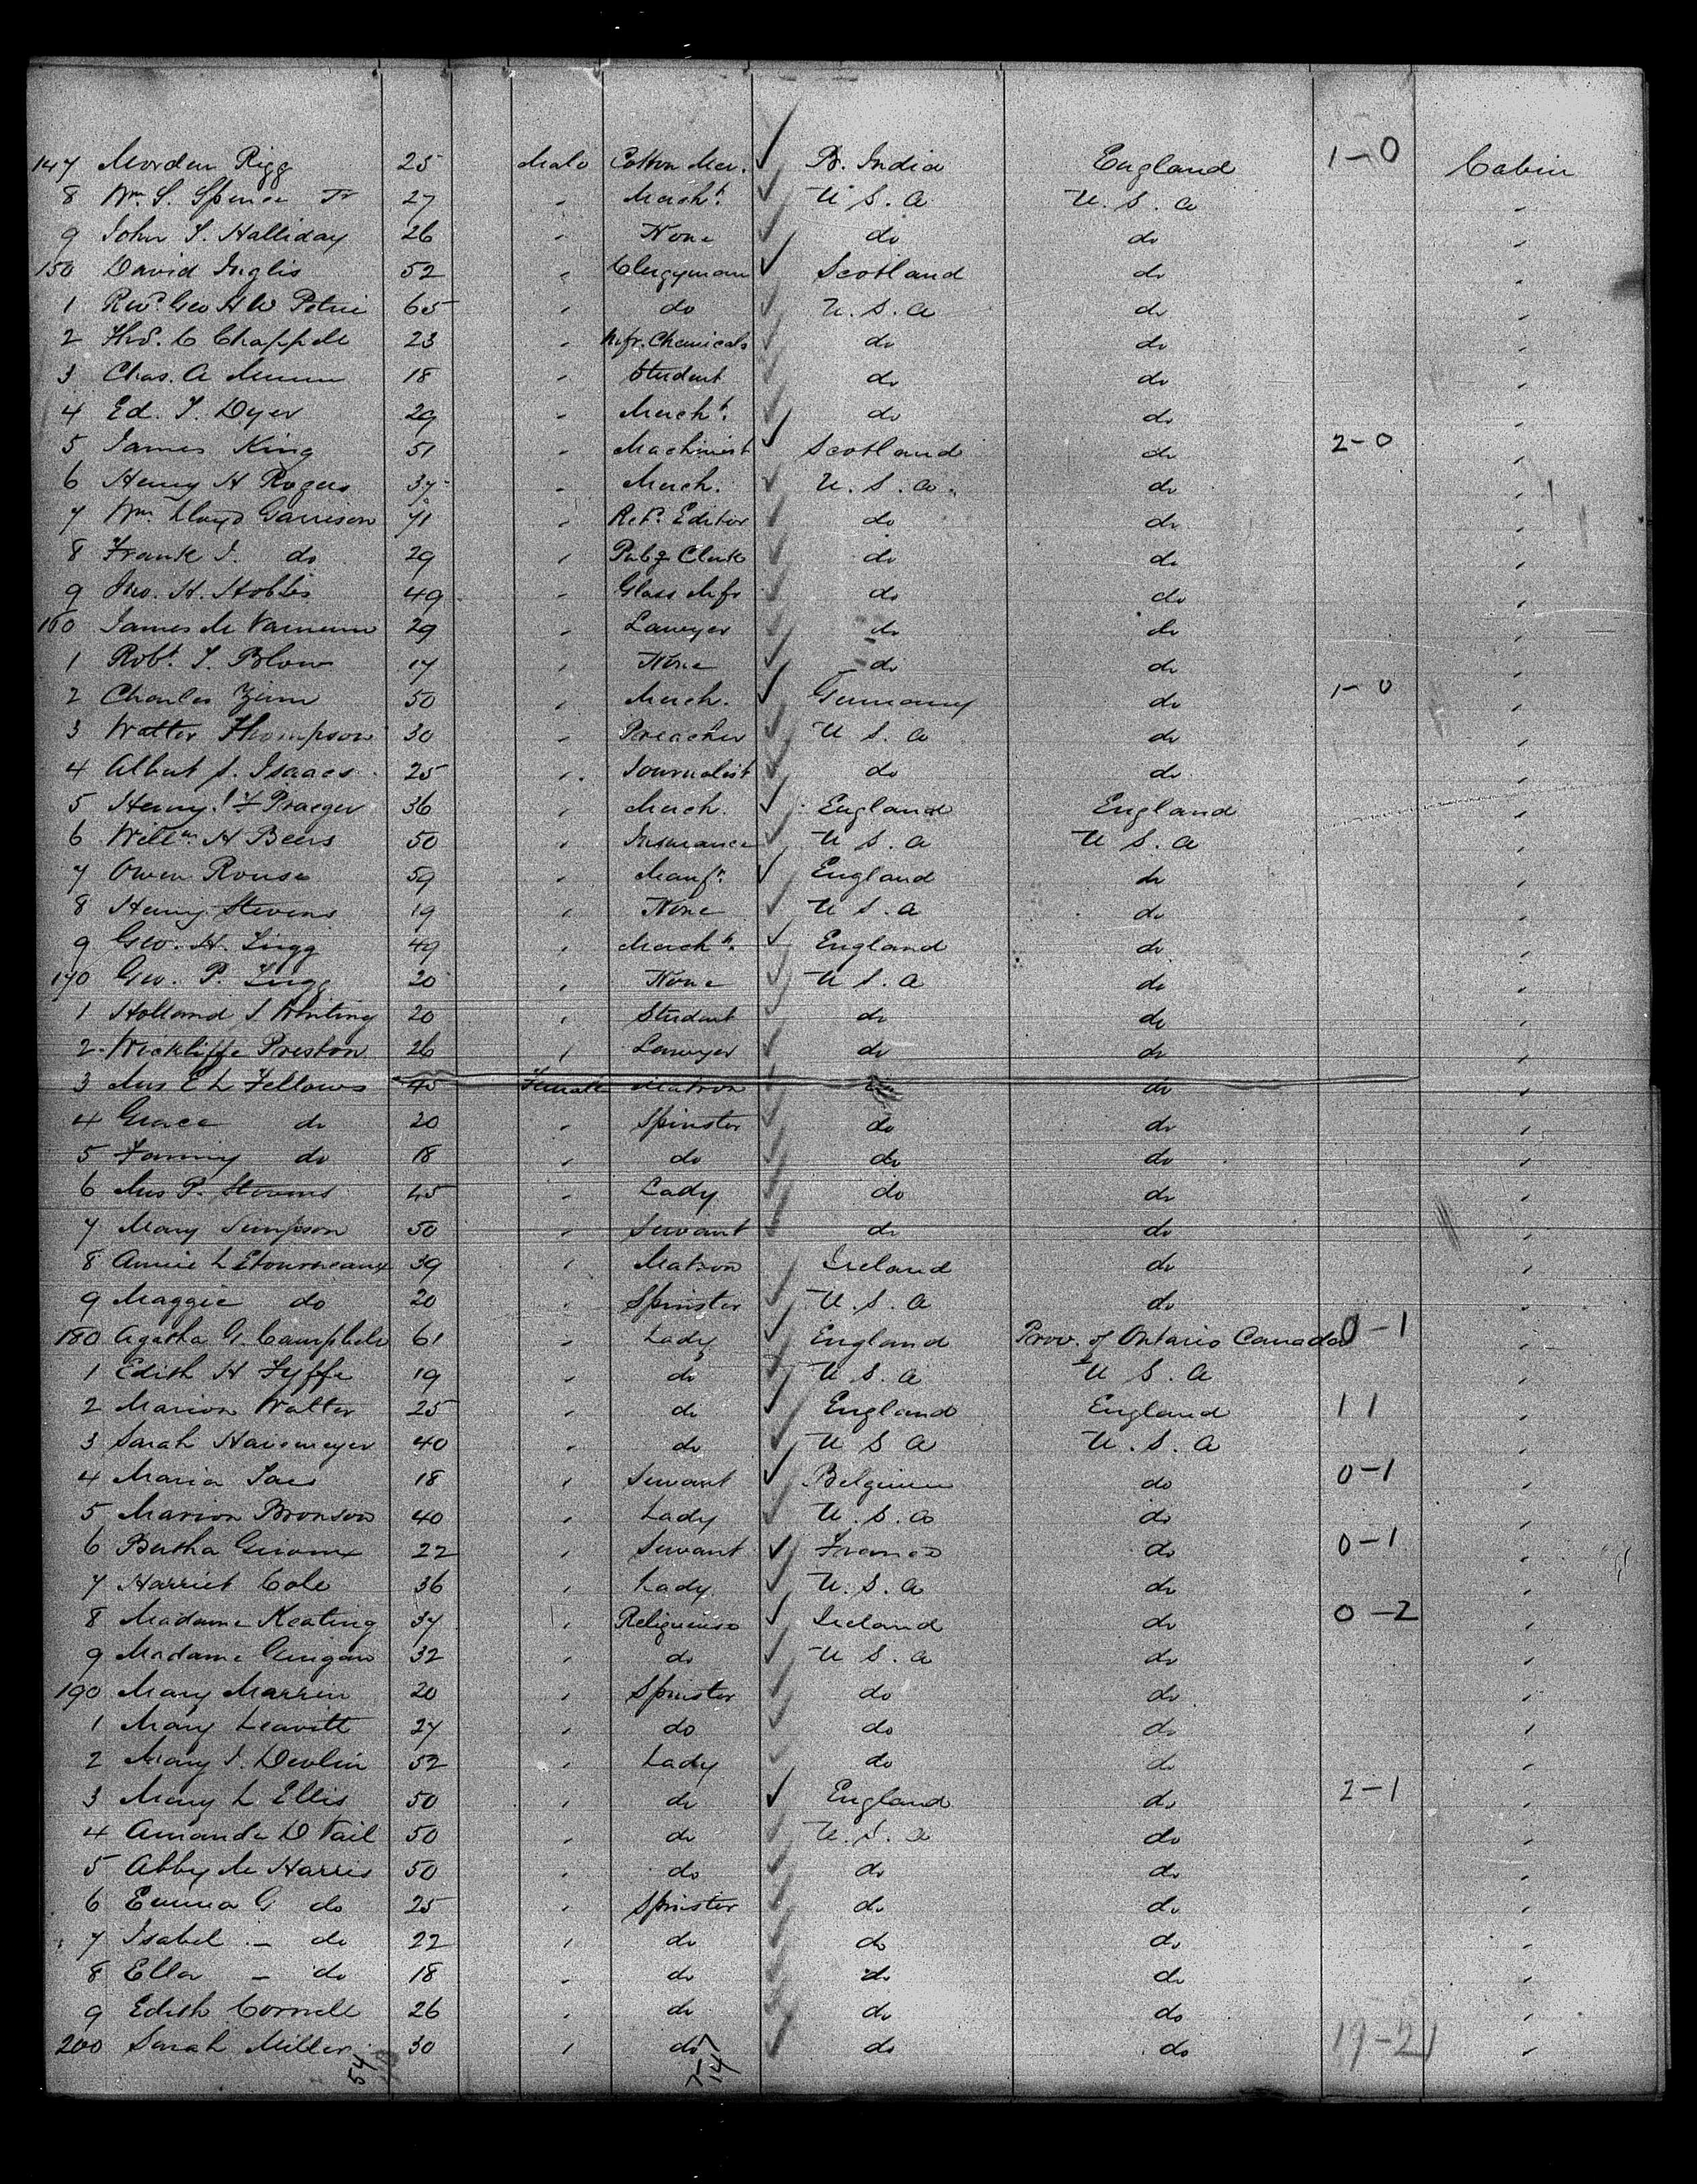 147 Morden Rigg 25 Male Cotton Mer. B. India England 1-0 Cabin
8 Wm. S. Spence Jr 27 " Mercht. U S. A U. S. A "
9 John S. Halliday 26 " None do do "
150 David Inglis 52 " Clergyman Scotland do "
1 Revd. Geo H W Petrie 65 " do U. S. A do "
2 Thos. C Chappell 23 " Mfr. Chemicals do do "
3 Chas. A Munn 18 " Student do do "
4 Ed. T. Dyer 29 " Mercht. do do "
5 James King 51 " Machinist Scotland do 2-0 "
6 Henry H Rogers 37 " Merch. U. S. A. do "
7 Wm. Lloyd Garrison 71 " Retd. Editor do do "
8 Frank J. do 29 " Pubg Clerk do do "
9 Jno. H. Hobbs 49 " Glass Mfr do do "
160 James M Varnum 29 " Lawyer do do "
1 Robt. S. Blow 17 " None do do "
2 Charles Zinn 50 " Merch. Germany do 1-0 "
3 Walter Thompson 30 " Preacher U S. A do "
4 Albert J. Isaacs 25 " Journalist do do "
5 Henry F Praeger 36 " Merch. England England "
6 Willm. H Beers 50 " Insurance U S. A U S. A "
7 Owen Rouse 59 " Manfr. England do "
8 Henry Stevens 19 " None U S. A do "
9 Geo. H. Lugg 49 " Mercht. England do "
170 Geo. P. Lugg 20 " None U S. A do "
1 Holland S. Whiting 20 " Student do do "
2 Wickliffe Preston 26 " Lawyer do do "
3 Mrs E L Fellows 45 Female Matron do "
4 Grace do 20 " Spinster do do "
5 Fanny do 18 " do do do "
6 Mrs P. Stevens 45 " Lady do do "
7 Mary Simpson 50 " Servant do do "
8 Annie L'Etourneaux 39 " Matron Ireland do "
9 Maggie do 20 " Spinster U. S. A do "
180 Agatha G. Campbell 61 " Lady England Prov. of Ontario Canada 0-1 "
1 Edith H Fyffe 19 " do U S. A U S. A "
2 Marion Walter 25 " do England England 1 1 "
3 Sarah Havemeyer 40 " do U S A U. S. A "
4 Maria 18 " Servant Belgium do 0-1 "
5 Marion Bronson 40 " Lady U. S. A do "
6 Bertha 22 " Servant France do 0-1 "
7 Harriet Cole 36 " Lady U. S. A do "
8 Madame Keating 37 " Religieuse Ireland do 0-2 "
9 Madame Guigan 32 " do U S. A do "
190 Mary Marrin 20 " Spinster do do "
1 Mary Leavitt 27 " do do do "
2 Mary J. Devlin 52 " Lady do do "
3 Mary L Ellis 50 " do England do 2-1 "
4 Amanda D Vail 50 " do U. S. A do "
5 Abby M Harris 50 " do do do "
6 Emma G do 25 " Spinster do do "
7 Isabel - do 22 " do do do "
8 Ella - do 18 " do do do "
9 Edith Cornell 26 " do do do "
200 Sarah Miller 30 " do do do 19-21 "
54